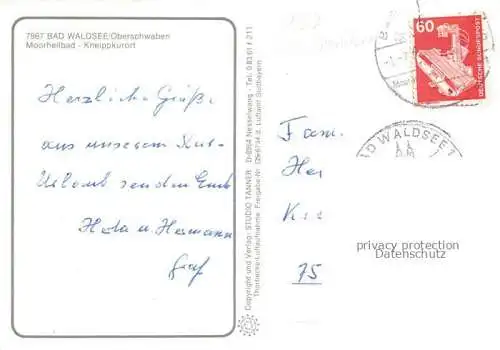 7967 BAD WALDSEE/Oberschwaben
Moorheilbad - Kneippkurort
Herzliche Grüße
aus unserem Kur-
Urlaub senden Euch
Herta u. Hermann
Graf
Copyright und Verlag: STUDIO TANNER D-8964 Nesselwang - Tel. 0 83 61 / 211
Thorbecke-Luftaufnahme Freigabe-Nr. G5/6734 d. Luftamt Südbayern
60
DEUTSCHE BUNDESPOST
BAD WALDSEE 1
Fam.
Her
75
privacy protection
Datenschutz